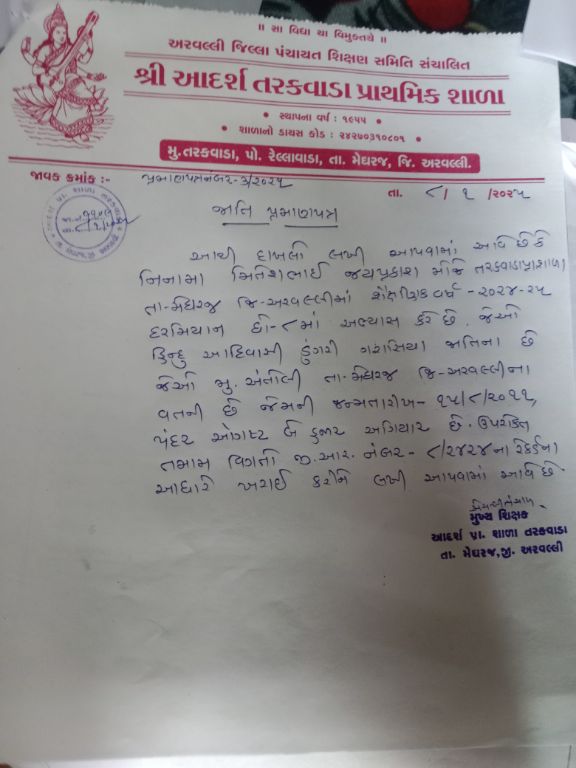 ॥ સા વિદ્યા યા વિમુક્તયે ॥
અરવલ્લી જિલ્લા પંચાયત શિક્ષણ સમિતિ સંચાલિત
શ્રી આદર્શ તરકવાડા પ્રાથમિક શાળા
• સ્થાપના વર્ષ : ૧૯૫૫ •
• શાળાનો ડાયસ કોડ : ૨૪૨૭૦૩૧૦૮૦૧ •
મુ.તરકવાડા, પો. રેલ્લાવાડા, તા. મેઘરજ, જિ. અરવલ્લી.
જાવક ક્રમાંક :- પ્રમાણપત્રનંબર-૩/૨૦૨૫ તા. ૮/૧/૨૦૨૫
જાતિ પ્રમાણપત્ર
આથી દાખલો લખી આપવામાં આવે છે કે
નિનામા મિતેશભાઈ જયપ્રકાશ મોજે તરકવાડાપ્રા.શાળા
તા-મેઘરજ જિ-અરવલ્લીમાં શૈક્ષણિક વર્ષ -૨૦૨૪-૨૫
દરમિયાન ધો-૮માં અભ્યાસ કરે છે. જેઓ
હિન્દુ આદિવાસી ડુંગરી ગરાસિયા જાતિના છે
જેઓ મુ. અંતોલી તા-મેઘરજ જિ-અરવલ્લીના
વતની છે જેમની જન્મતારીખ- ૧૫/૮/૨૦૧૧,
પંદર ઓગષ્ટ બે હજાર અગિયાર છે. ઉપરોક્ત
તમામ વિગતો જી.આર. નંબર - ૮/૨૪૨૪ના રેકર્ડના
આધારે ખરાઈ કરીને લખી આપવામાં આવે છે
મુખ્ય શિક્ષક
આદર્શ પ્રા. શાળા તરકવાડા
તા. મેઘરજ,જી. અરવલ્લી